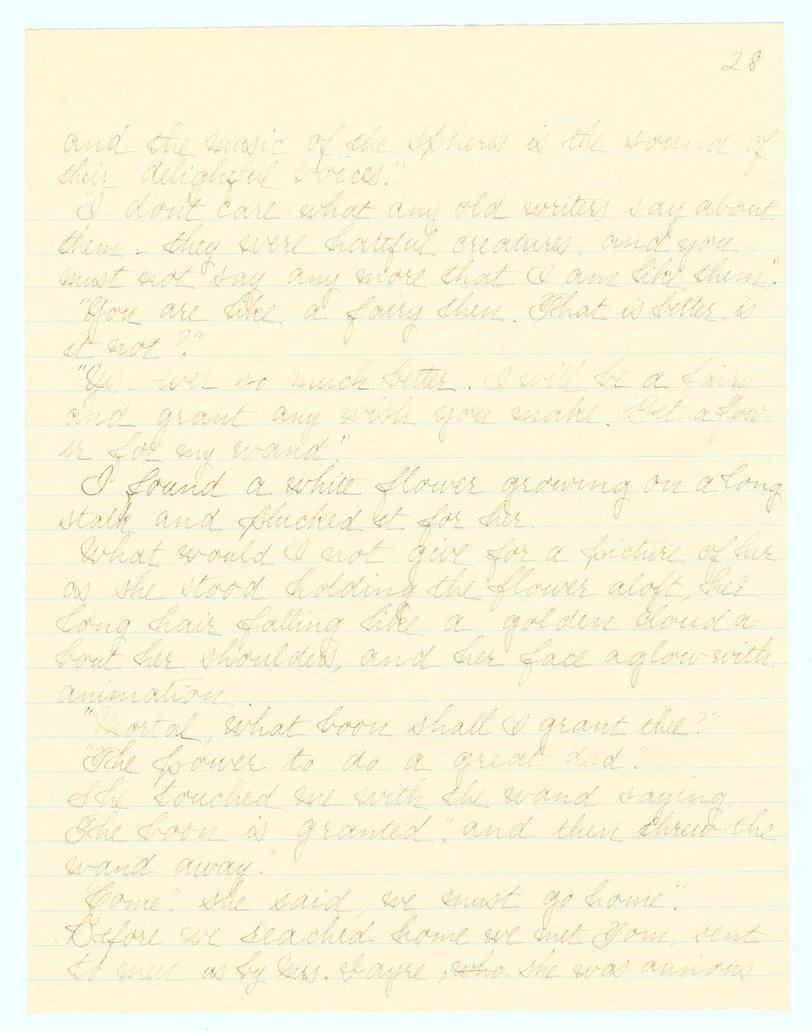 28
and the music of the spheres is the sound of
their delightful voices."
I dont care what any old writers say about
them - they were hateful creatures, and you
must not say any more that I am like them".
"You are like a fairy then. That is better, is
it not?"
"Yes - ever so much better. I will be a fairy
and grant any wish you make. Get a flow-
er for my wand".
I found a white flower growing on a long
stalk and plucked it for her.
What would I not give for a picture of her
as she stood holding the flower aloft, her
long hair falling like a golden cloud a-
bout her shoulders, and her face aglow with
animation
"Mortal, what boon shall I grant thee?"
"The power to do a great deed".
She touched me with the wand saying,
"The boon is granted", and then threw the
wand away."
"Come", she said, we must go home".
Before we reached home we met Tom, sent
to meet us by Mrs. Vayre, who she was anxious